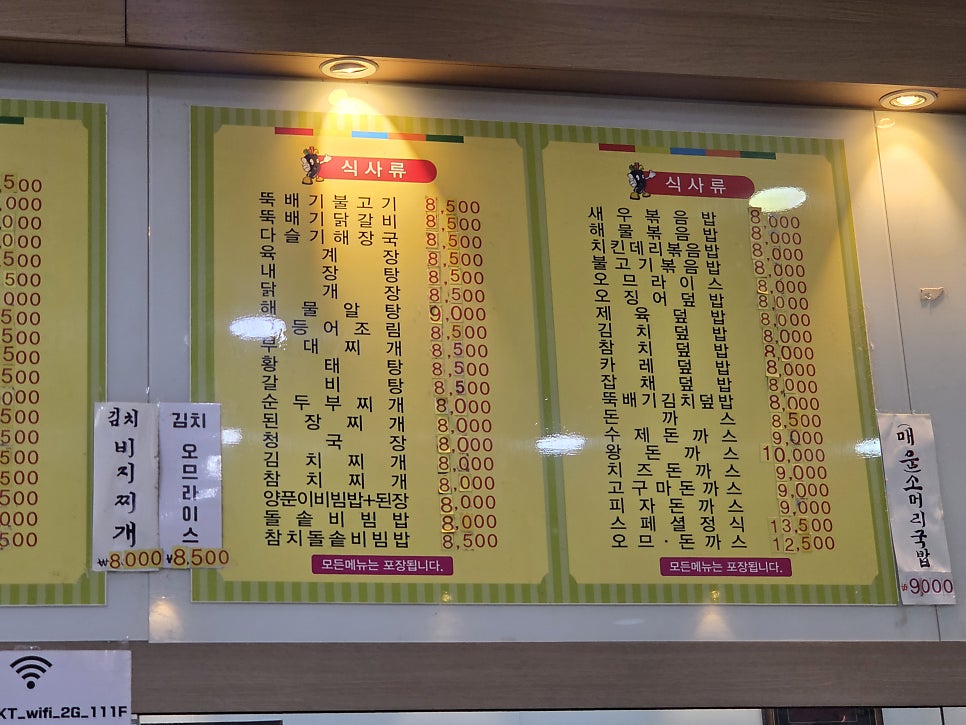 식사류
뚝배기불고기 8,500
뚝배기닭갈비 8,500
다슬기해장국 8,500
육계장 8,500
내장탕 8,500
닭개장 8,500
해물알탕 9,000
등어조림 8,500
부대찌개 8,500
황태탕 8,500
갈비탕 8,500
순두부찌개 8,000
된장찌개 8,000
청국장 8,000
김치찌개 8,000
참치찌개 8,000
양푼이비빔밥+된장 8,000
돌솥비빔밥 8,000
참치돌솥비빔밥 8,500
모든메뉴는 포장됩니다.
식사류
새우볶음밥 8,000
해물볶음밥 8,000
치킨데리볶음밥 8,000
불고기볶음밥 8,000
오므라이스 8,000
오징어덮밥 8,000
제육덮밥 8,000
김치덮밥 8,000
참치덮밥 8,000
카레덮밥 8,000
잡채덮밥 8,000
뚝배기김치덮밥 8,000
돈까스 8,500
수제돈까스 9,000
왕돈까스 10,000
치즈돈까스 9,000
고구마돈까스 9,000
피자돈까스 9,000
스페셜정식 13,500
오므·돈까스 12,500
모든메뉴는 포장됩니다.
김치
비지찌개
₩8,000
김치
오므라이스
₩8,500
매운소머리국밥
₩9,000
KT_wifi_2G_111F